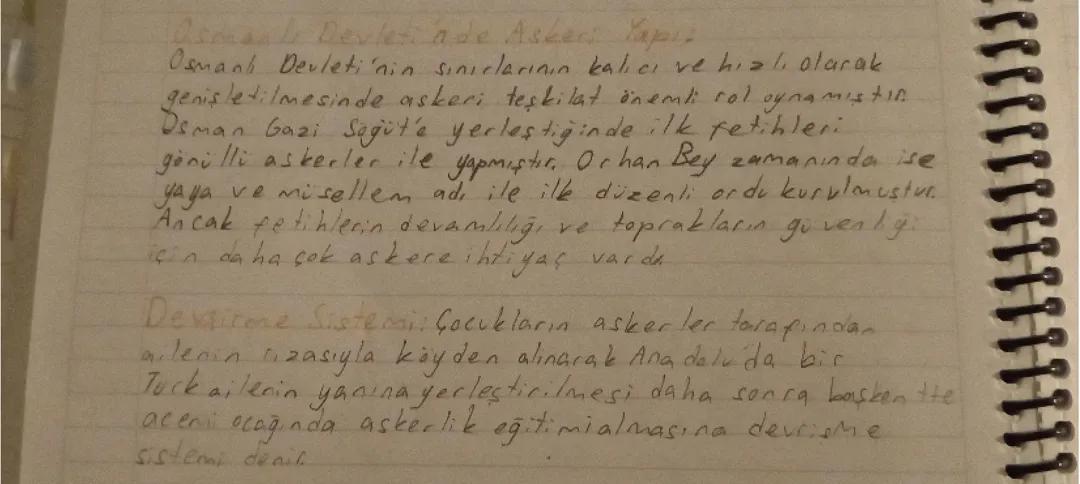 Osmanlı Devleti'nde Askeri Yapı:
Osmanlı Devleti'nin sınırlarının kalıcı ve hızlı olarak
genişletilmesinde askeri teşkilat önemli rol oynamıştır.
Osman Gazi Söğüt'e yerleştiğinde ilk fetihleri
gönülli askerler ile yapmıştır. Orhan Bey zamanında ise
yaya ve müsellem adı ile ilk düzenli ordu kurulmuştur.
Ancak fetihlerin devamlılığı ve toprakların güvenliği
için daha çok askere ihtiyaç vardı.
Devşirme Sistemi: Çocukların askerler tarafından
ailenin rızasıyla köyden alınarak Anadolu'da bir
Türk ailenin yanına yerleştirilmesi daha sonra başkentte
acemi ocağında askerlik eğitimi almasına devrişme
sistemi denir.